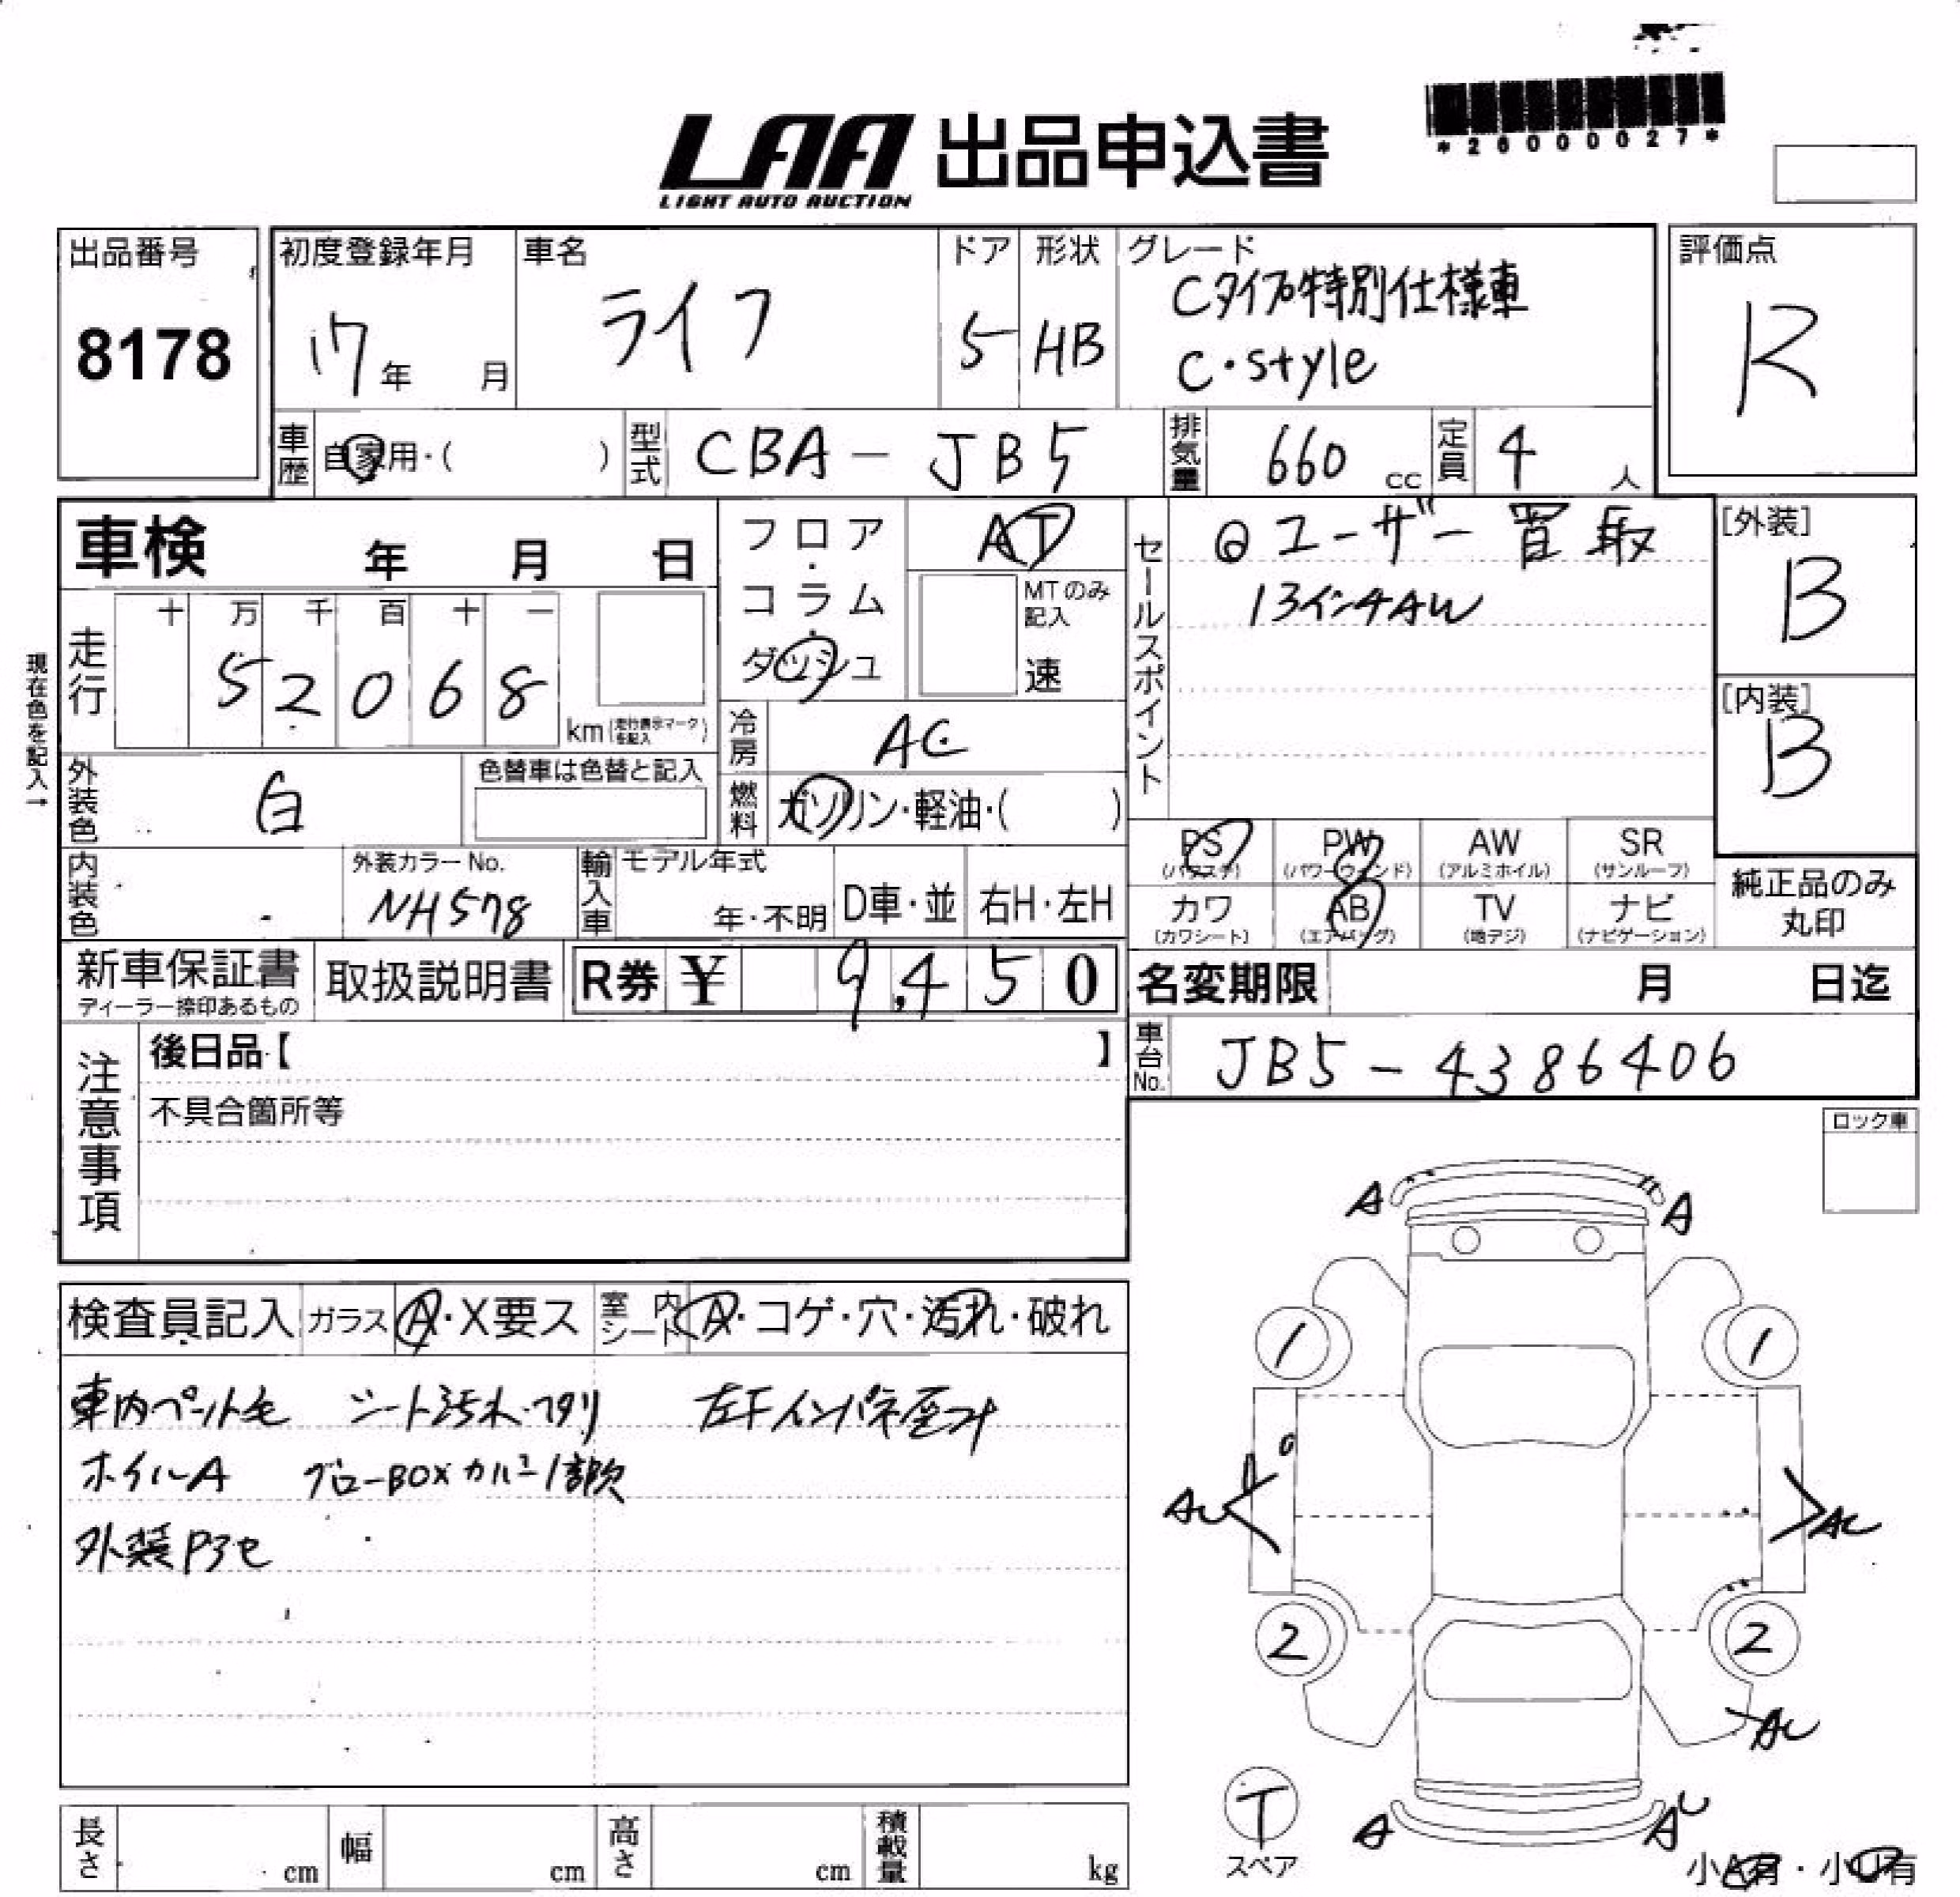 *26000027*
LAA 出品申込書
LIGHT AUTO AUCTION
出品番号
8178
初度登録年月
17年 月
車名
ライフ
ドア
5
形状
HB
グレード
Cタイプ特別仕様車
C・style
評価点
R
車歴
自家用・( )
型式
CBA-JB5
排気量
660 cc
定員
4 人
車検 年 月 日
現在色を記入→
走行
十 万 千 百 十 一
5 2 0 6 8
km(走行表示マークを記入)
フロア・コラム・ダッシュ
AT
MTのみ記入
速
冷房
AC
燃料
ガソリン・軽油・( )
セールスポイント
◎ユーザー買取
13インチAW
[外装]
B
[内装]
B
外装色
白
色替車は色替と記入
内装色
外装カラーNo.
NH578
輸入車
モデル年式
年・不明
D車・並
右H・左H
PS
(パワステ)
PW
(パワーウィンド)
AW
(アルミホイル)
SR
(サンルーフ)
カワ
(カワシート)
AB
(エアバッグ)
TV
(地デジ)
ナビ
(ナビゲーション)
純正品のみ
丸印
新車保証書
ディーラー捺印あるもの
取扱説明書
R券 ¥ 9,450
名変期限 月 日迄
車台No.
JB5-4386406
注意事項
後日品【 】
不具合箇所等
ロック車
検査員記入
ガラス A・X要ス
室内シート A・コゲ・穴・汚れ・破れ
車内ペット毛 シート汚れ・ヘタリ 左Fインパネ
ホイルA グローBOX
外装
A A
1 1
AU AU
2 2
AU
A AU
T
スペア
小A有・小U有
長さ cm
幅 cm
高さ cm
積載量 kg